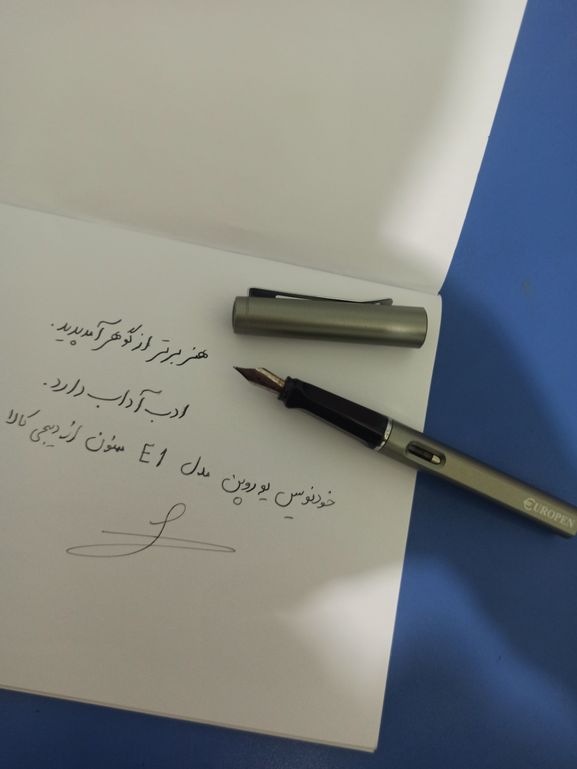 هنر برتر از گوهر آمد پدید.
ادب آداب دارد.
خودنویس یوروپن مدل E1 ممنون از دیجی کالا
EUROPEN